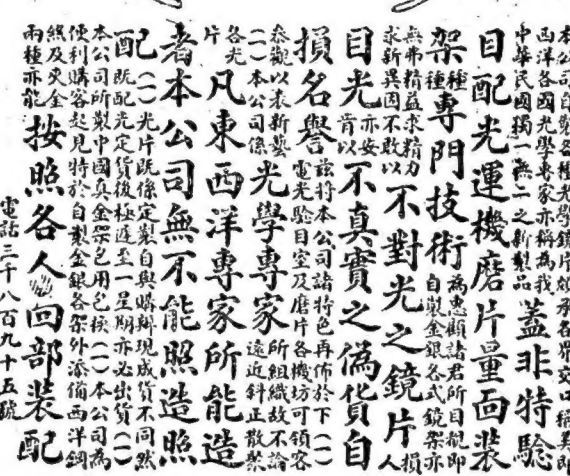 本公司自製各種光學鏡片頗承各界交口稱美即
西洋各國光學專家亦稱為我
中華民國獨一無二之新製品
蓋非特驗
目配光運機磨片量面裝
架
種種
專門技術
為惠顧諸君所目能即
自製金銀各式鏡架亦
無弗精益求精力
求新異因不敢以
不對光之鏡片
損人
目光
亦妄
肯以
不真實之偽貨自
損名譽
茲將本公司諸特色再佈於下(一)
電光驗目室及磨片各機坊可領客
參觀以表新藝
(一)本公司係
光學專家
所組織故不論
遠近斜正散聚
各光
片
凡東西洋專家所能造
者本公司無不能照造照
配
(一)光片既係定製自與購辦現成貨不同然
既配光定貨後極遲至一星期亦必出貨(一)
本公司所製中國真金架包用包換(一)本公司為
便利購客起見特於自製金銀各架外添備西洋鋼
絲及金
兩種亦能
按照各人
回部裝配
電話三千八百九十五號